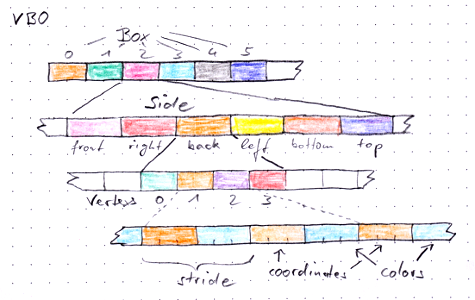 VBO
Box
0 1 2 3 4 5
Side
front right back left bottom top
Vertexs 0 1 2 3
stride coordinates colors